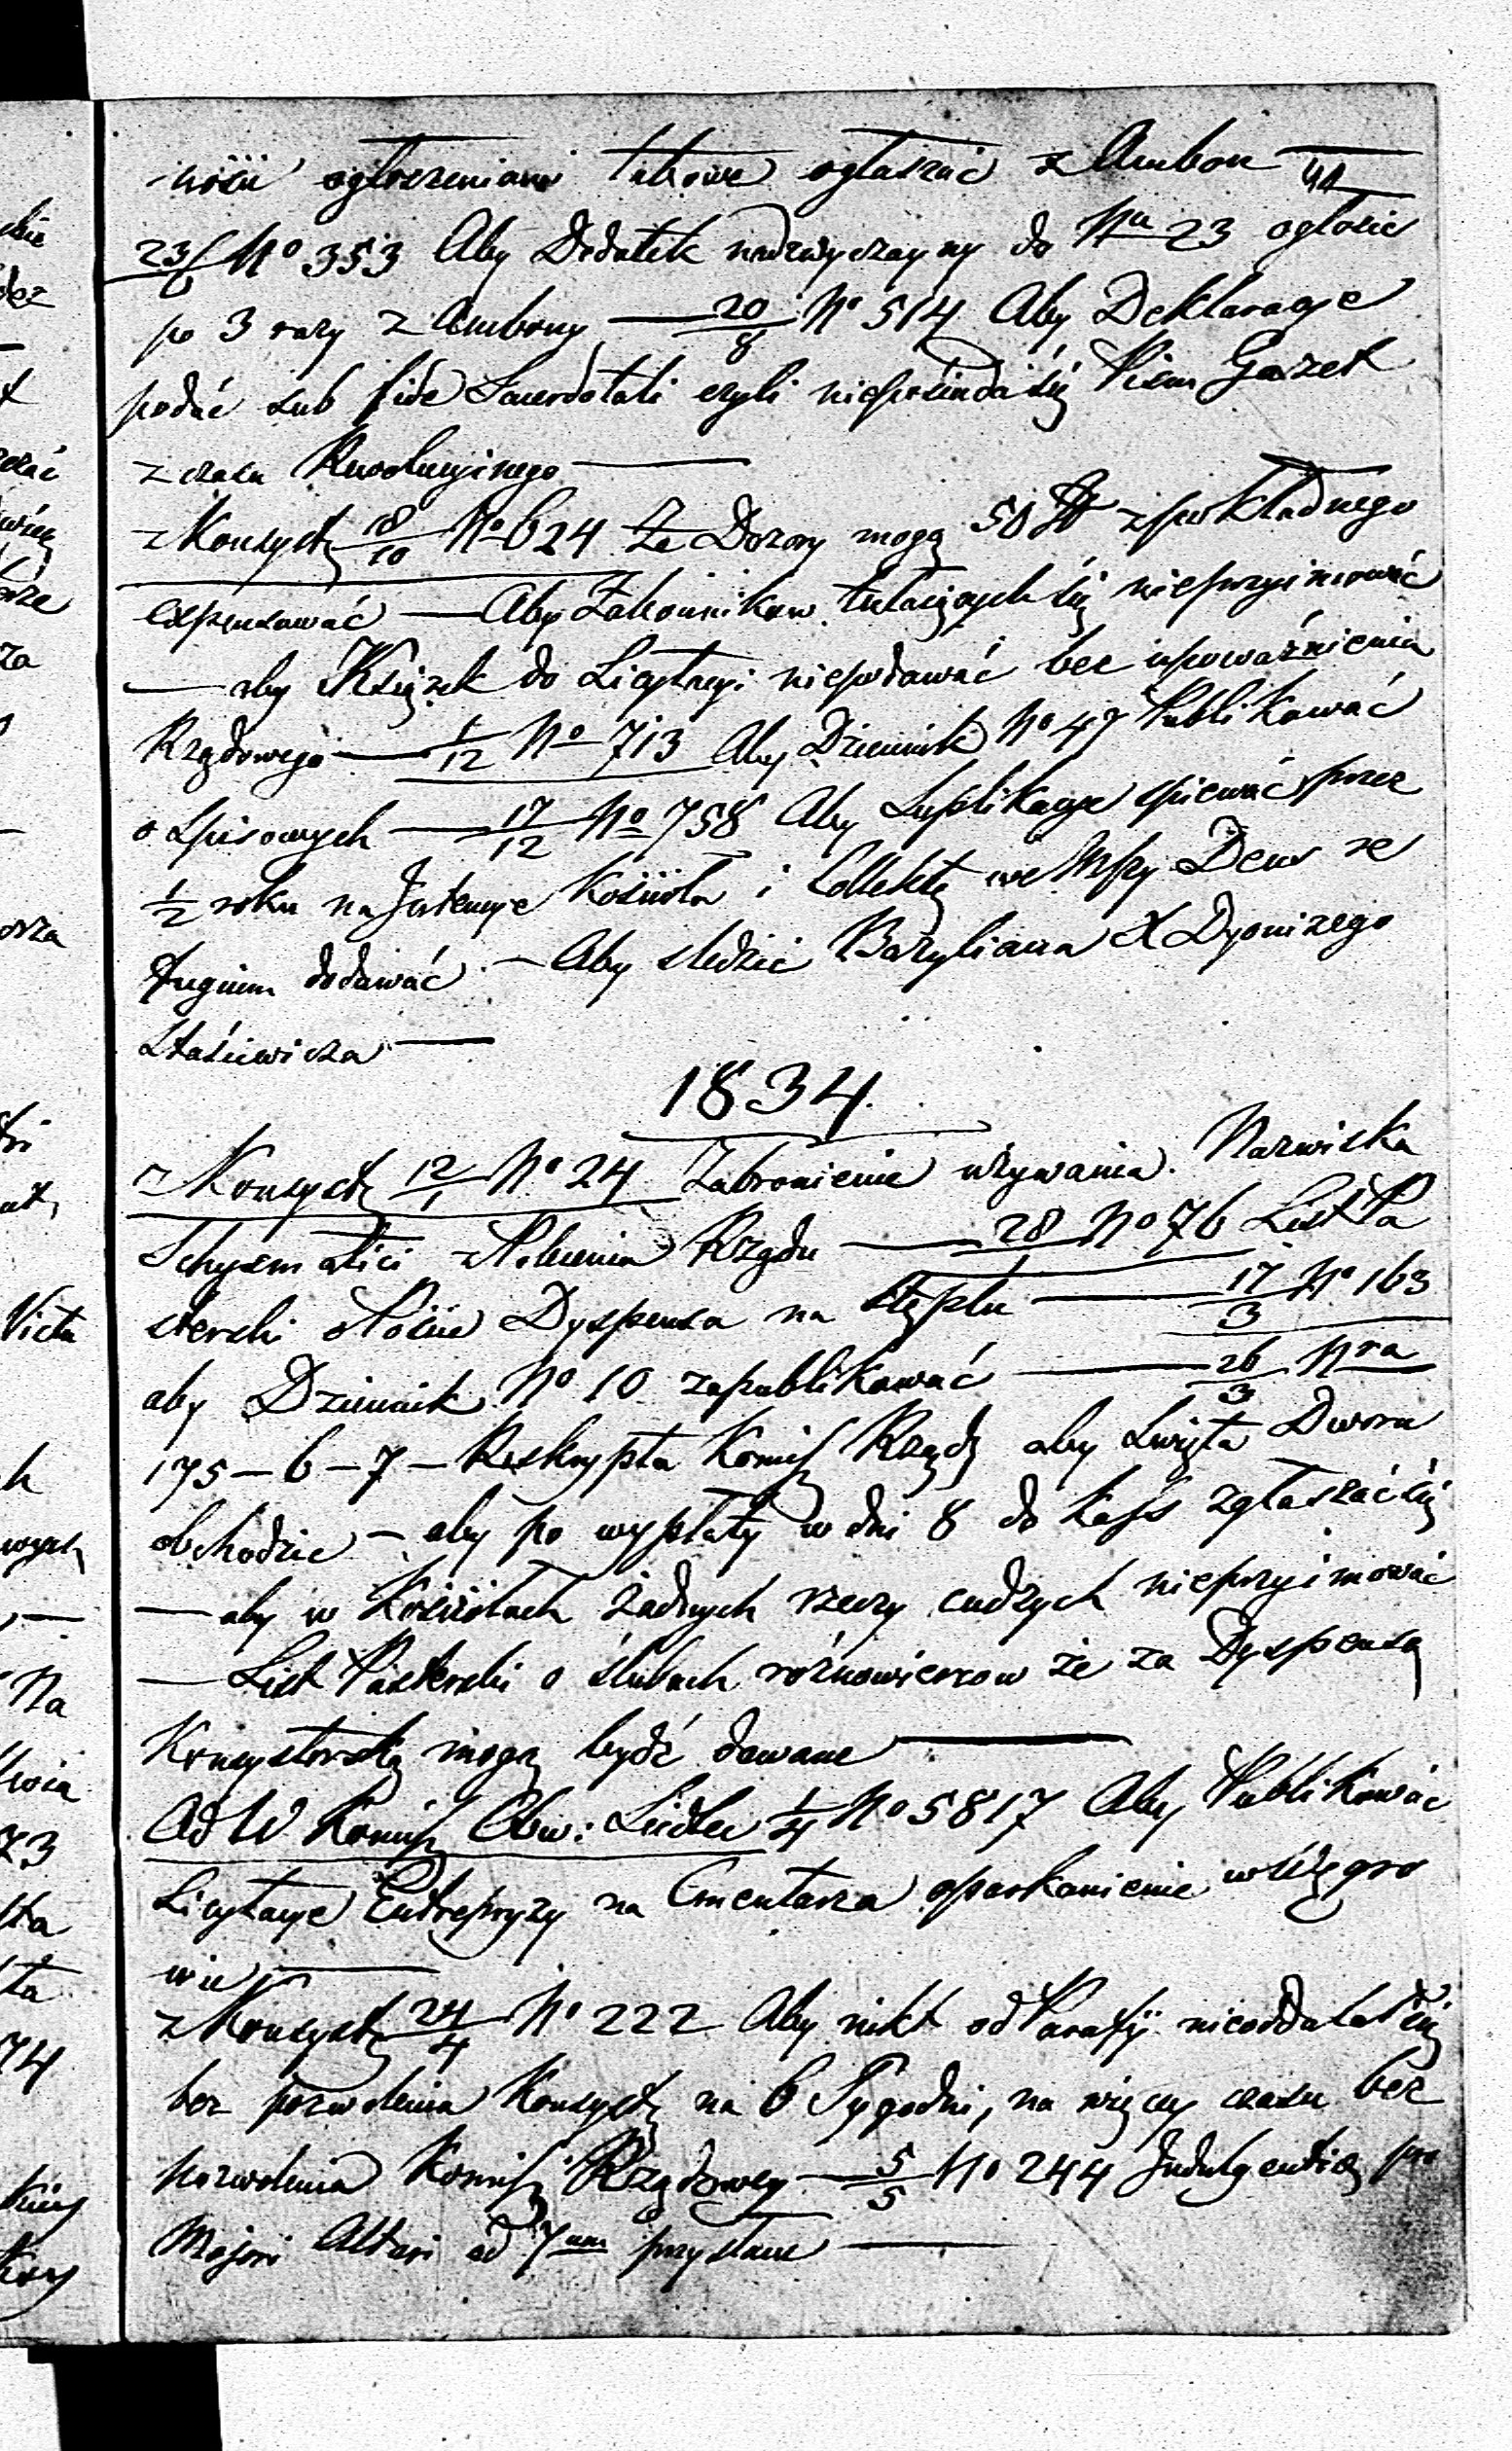 ności ogłoszeniami takowe ogłaszać z Ambon
44
23/6 No 353 Aby Dodatek nadzwyczayny do Nu 23 ogłosić
po 3 razy z Ambony — 20/8 No 514 Aby Deklaracye
podać sub fide Sacerdotali czyli nieposiada się Pism Gazet
z czasu Rewolucyinego —
z Konsyst 18/10 No 624 Że Dozory mogą 50 zł z pokładnego
expensować — Aby Zakonnikow tułaiących się nieprzyimować
— aby Książek do Licytacyi niepodawać bez upoważnienia
Rządowego — 1/12 No 713 Aby Dziennik No 47 Publikować
o Spisowych — 17/12 No 758 Aby Suplikacye śpiewać przez
1/2 roku na Jntencye Kościoła i Collektę we Mszy Deus re
fugium dodawać — Aby sledzić Bazyliana X Dyonizego
Staśiewicza —
1834.
z Konsyst 12/1 No 24 Zabronienie używania Nazwiska
Schysmatici z Polecenia Rządu — 28/1 No 76 List Pa
sterski o Poście Dyspensa na Stęplu — 17/3 No 163
aby Dziennik No 10 zapublikować — 26/3 Nra
175 – 6 – 7 – Reskrypta Komiss Rządz aby Swięta Dworu
obchodzić – aby po wypłaty w dni 8 do Kass zgłaszać się
— aby w Kościołach żadnych rzeczy cudzych nieprzyimować
— List Pasterski o ślubach różnowiercow że za Dyspensą
Konsystorską mogą bydź dawane —
Od W Komiss Obw: Siedlec 1/4 No 5817 Aby Publikować
Licytacye Entrepryzy na Cmentarza oparkanienie w Węgro
wie —
z Konsyst 24/4 No 222 Aby nikt od Parafii nieoddalał się
bez pozwolenia Konsyst na 6 Tygodni, na więcey czasu bez
pozwolenia Komiss Rządowey — 5/5 No 244 Jndulgentią pro
Majori Altari ad 7um przysłane —